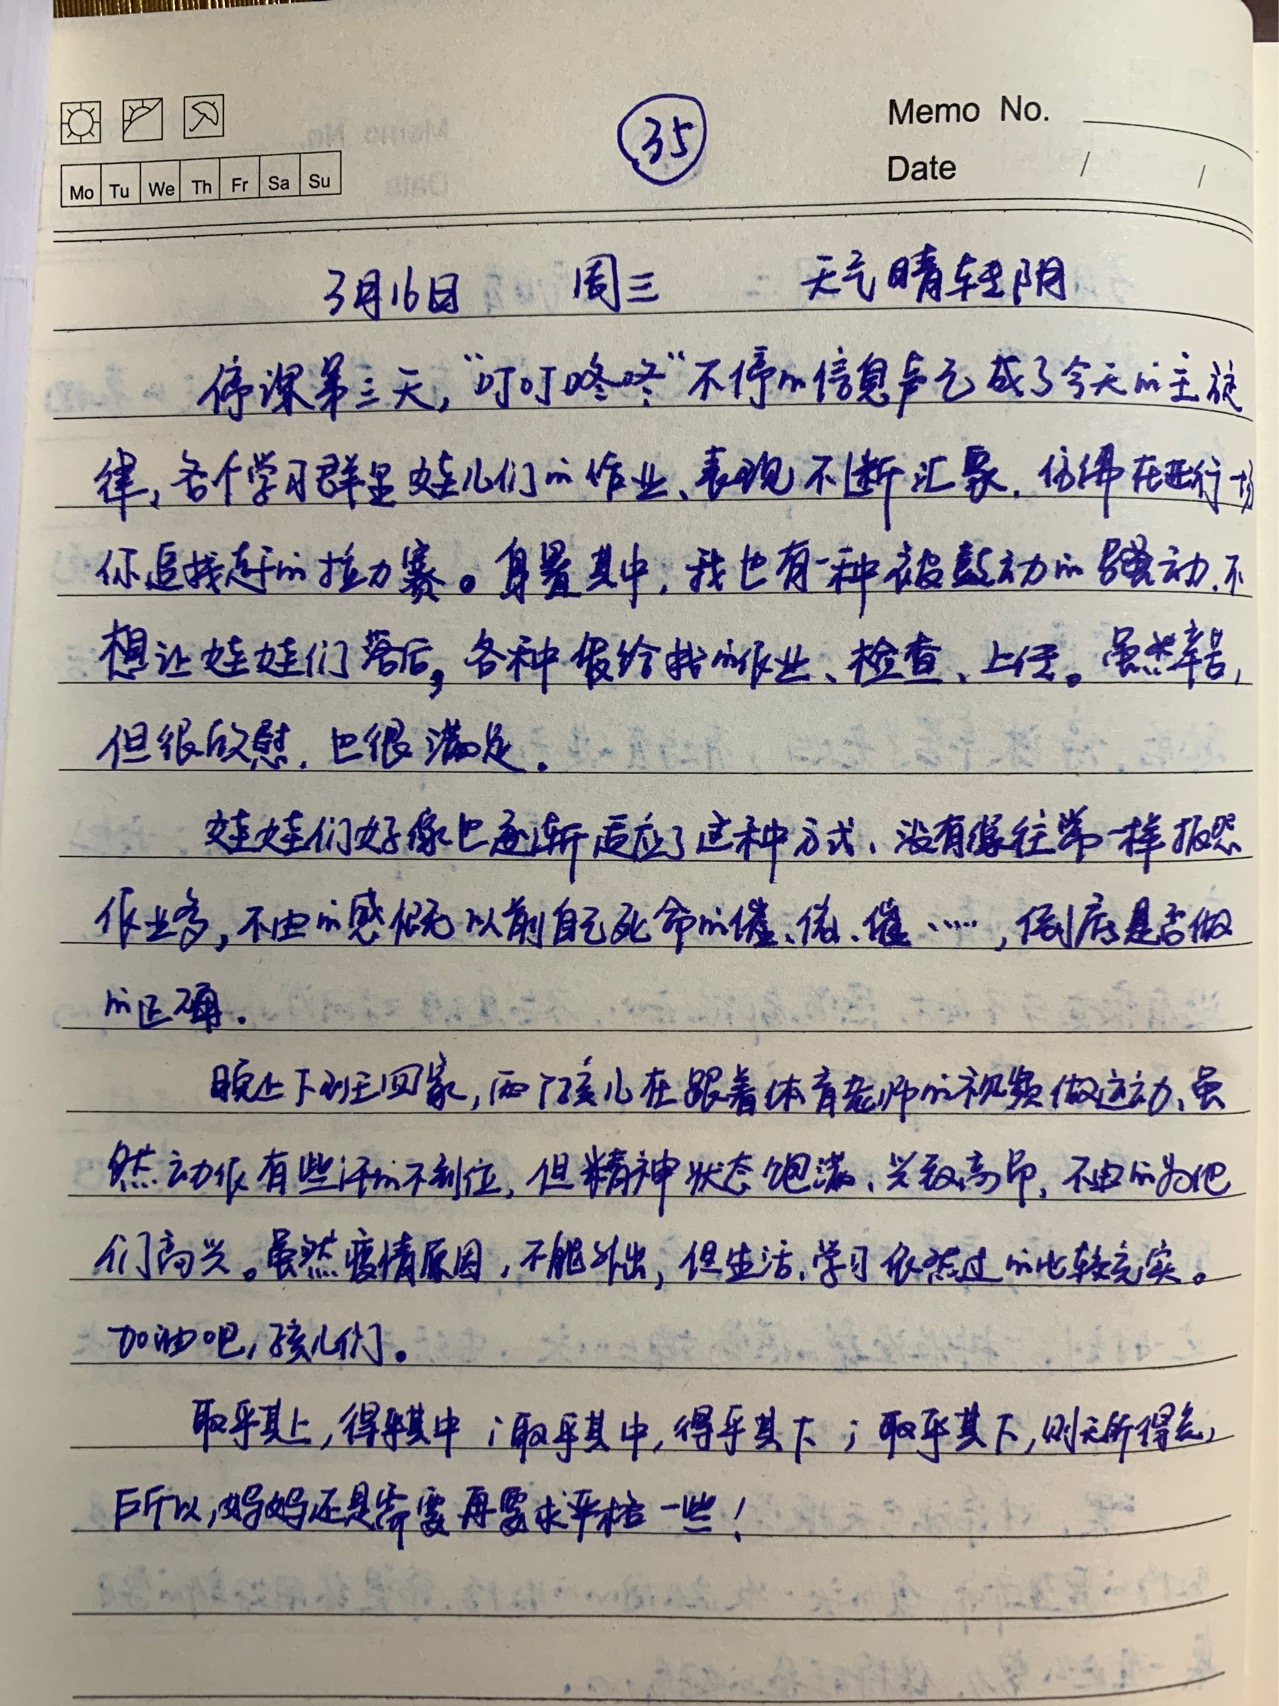 35
Memo No.
Date / /
Mo Tu We Th Fr Sa Su
3月16日 周三 天气晴转阴
停课第三天，“叮叮咚咚”不停的信息声已成了今天的主旋
律，各个学习群里娃儿们的作业、表现不断汇聚，仿佛在进行一场
你追我赶的拉力赛。身置其中，我也有一种被鼓动的骚动，不
想让娃娃们落后，各种发给我的作业、检查、上传。虽然辛苦，
但很欣慰，也很满足。
娃娃们好像也逐渐适应了这种方式，没有像往常一样报怨
作业多，不由的感慨以前自己死命的催、做、催……，倒底是否做
的正确。
晚上下班回家，两个孩儿在跟着体育老师的视频做运动，虽
然动作有些许的不到位，但精神状态饱满，兴致高昂，不由的为他
们高兴。虽然疫情原因，不能外出，但生活，学习依然过的比较充实。
加油吧，孩儿们。
取乎其上，得乎其中；取乎其中，得乎其下；取乎其下，则无所得矣，
所以，妈妈还是需要再要求严格一些！